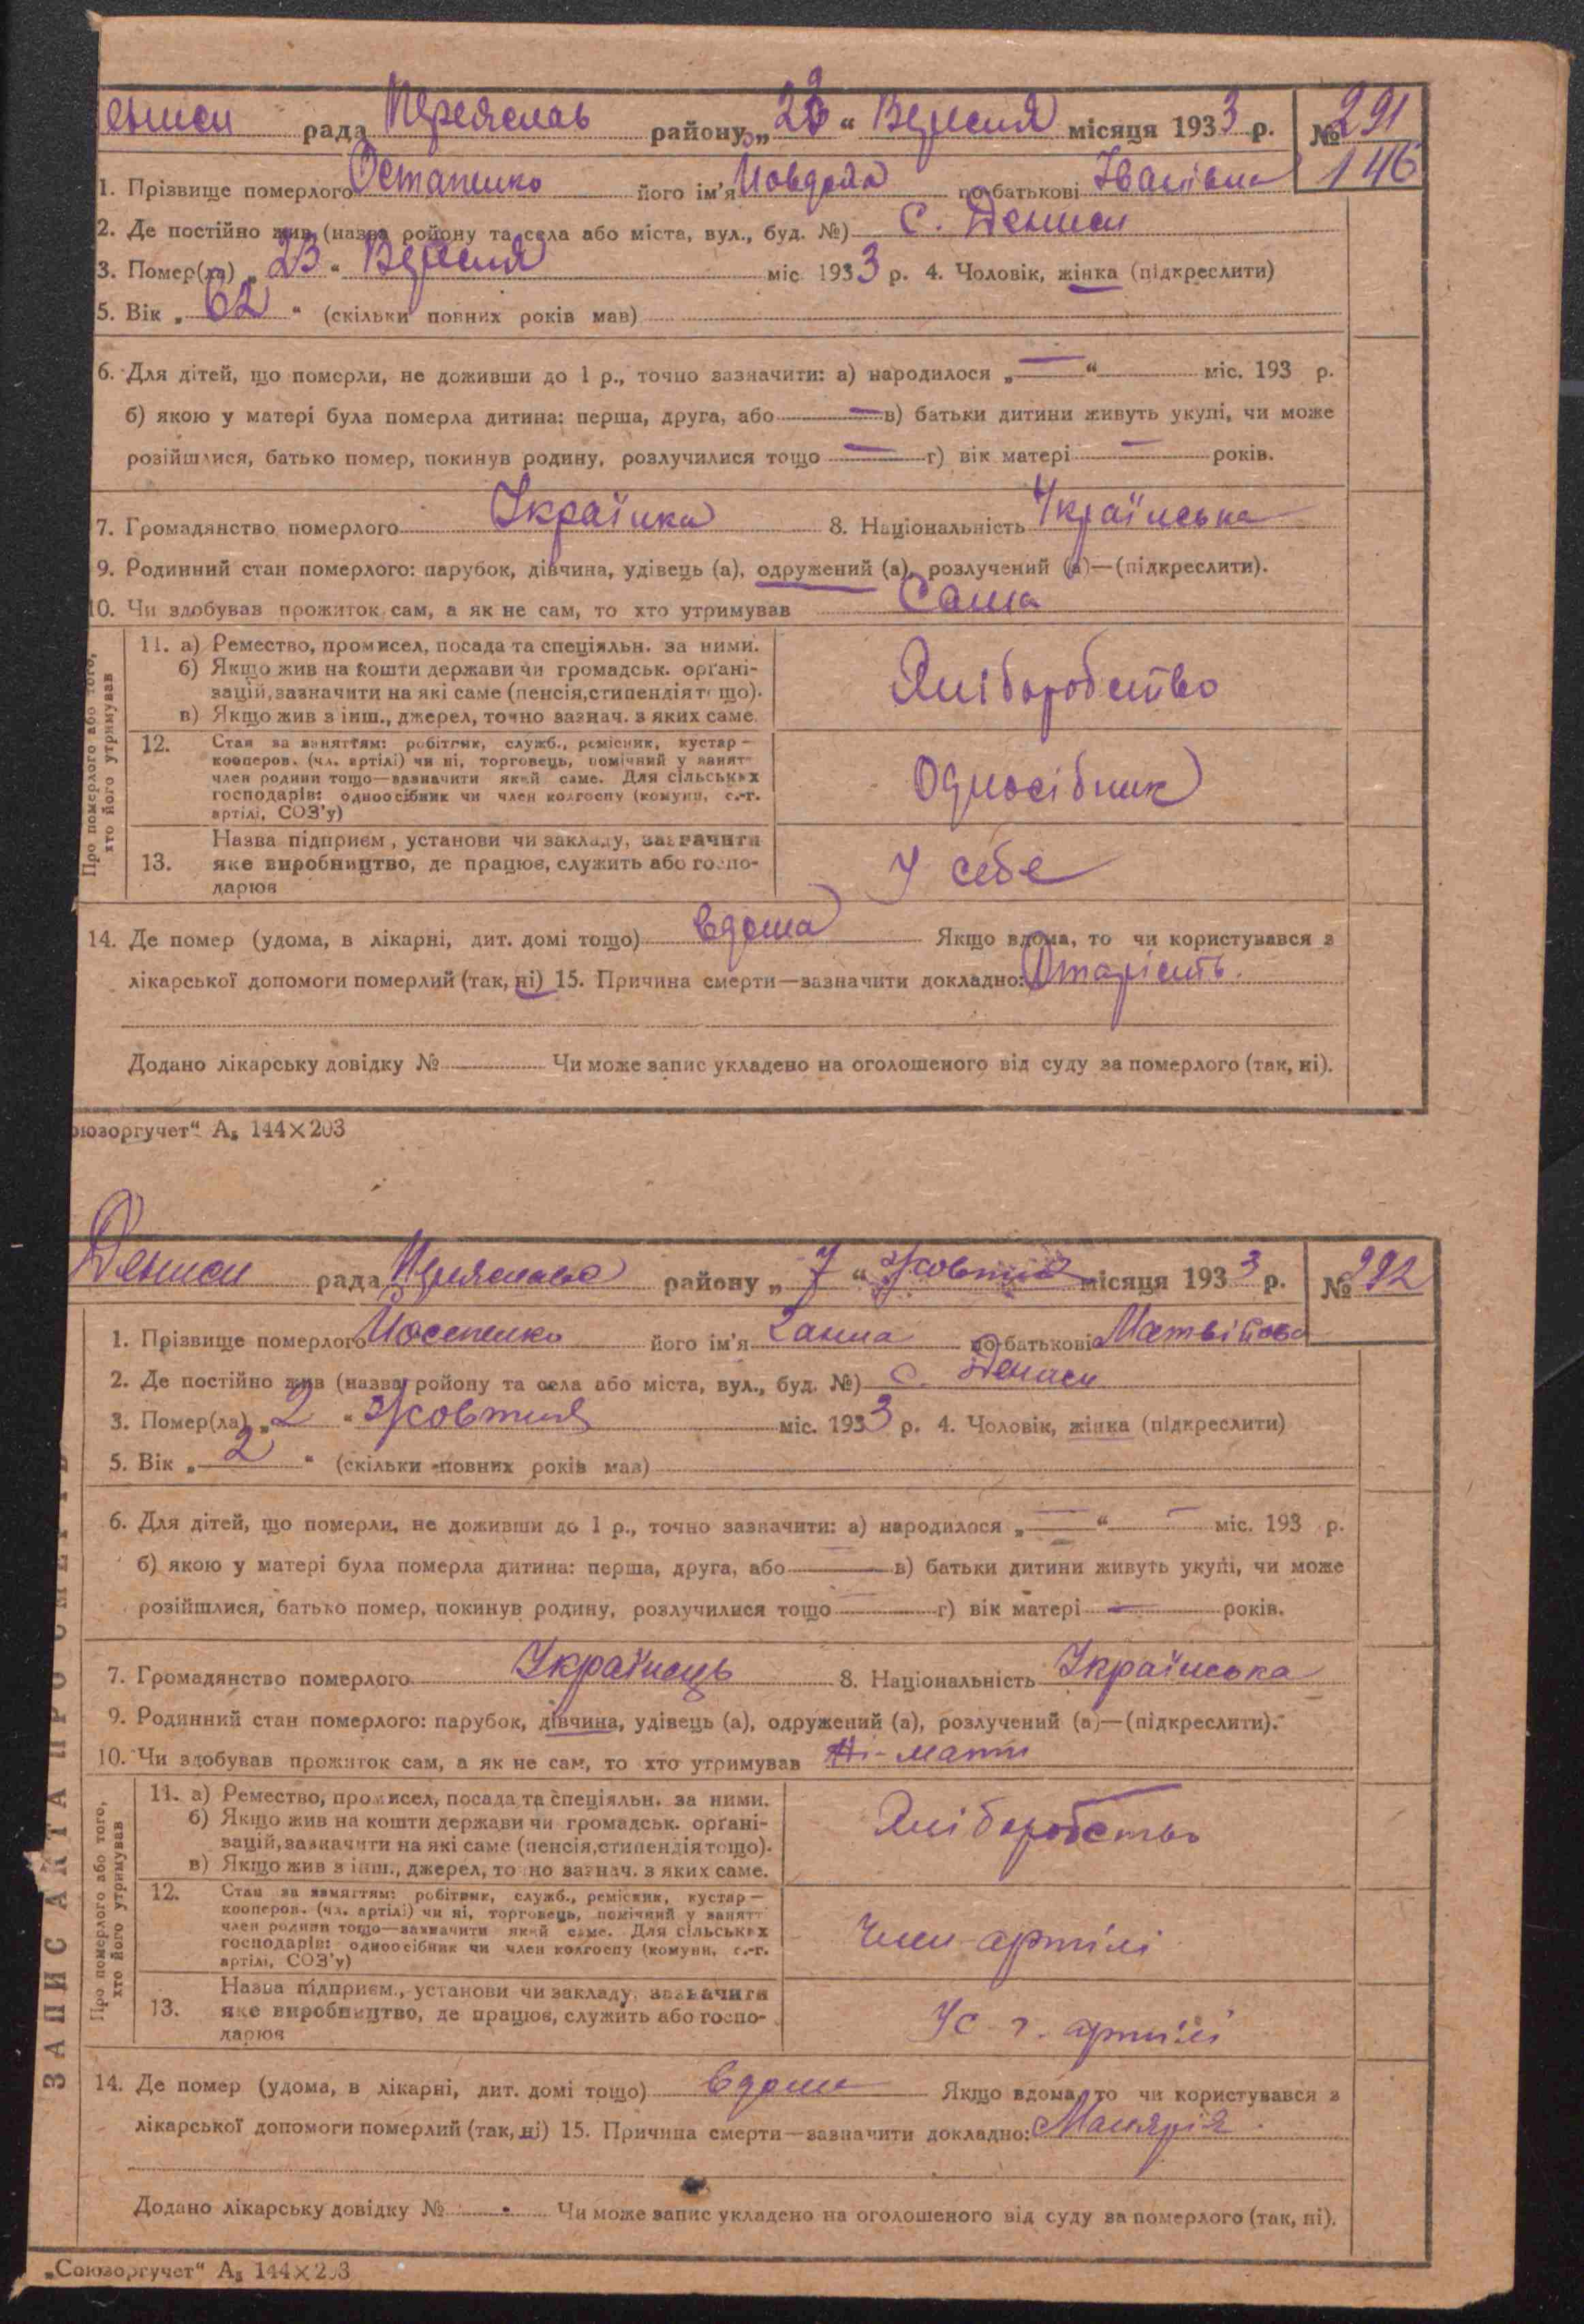 рада Переяслав району „23“ Вересня місяця 1933 р. № 291
146
1. Прізвище померлого Остапенко його ім'я Йовдоха по батькові Іванівна
2. Де постійно жив (назва ройону та села або міста, вул., буд. №) с. Дениси
3. Помер(ла) „23“ Вересня міс 1933 р. 4. Чоловік, жінка (підкреслити)
5. Вік „62“ (скільки повних років мав)
6. Для дітей, що померли, не доживши до 1 р., точно зазначити: а) народилося „—“ міс. 193 р.
б) якою у матері була померла дитина: перша, друга, або — в) батьки дитини живуть укупі, чи може
розійшлися, батько помер, покинув родину, розлучилися тощо — г) вік матері — років.
7. Громадянство померлого Українка 8. Національність Українська
9. Родинний стан померлого: парубок, дівчина, удівець (а), одружений (а), розлучений (а)—(підкреслити).
10. Чи здобував прожиток сам, а як не сам, то хто утримував Сама
Про померлого або того,
хто його утримував
11. а) Ремество, промисел, посада та спеціяльн. за ними.
б) Якщо жив на кошти держави чи громадськ. орґані-
зацій, зазначити на які саме (пенсія, стипендія тощо).
в) Якщо жив з інш., джерел, точно зазнач. з яких саме.
Хліборобство
12. Стан за заняттям: робітник, служб., ремісник, кустар—
кооперов. (чл. артілі) чи ні, торговець, помічний у занят-
член родини тощо—зазначити який саме. Для сільських
господарів: одноосібник чи член колгоспу (комуни, с.-г.
артілі, СОЗ'у)
Односібник
13. Назва підприєм., установи чи закладу, зазначити
яке виробництво, де працює, служить або госпо-
дарює
У себе
14. Де помер (удома, в лікарні, дит. домі тощо) вдома Якщо вдома, то чи користувався з
лікарської допомоги померлий (так, ні) 15. Причина смерти—зазначити докладно: Старість.
Додано лікарську довідку № Чи може запис укладено на оголошеного від суду за померлого (так, ні).
оюзоргучет“ А₅ 144×203
Дениси рада Переяславс району „7“ Жовтня місяця 1933 р. № 292
1. Прізвище померлого Йосипенко його ім'я Ганна по батькові Матвійова
2. Де постійно жив (назва ройону та села або міста, вул., буд. №) с. Дениси
3. Помер(ла) „2“ Жовтня міс. 1933 р. 4. Чоловік, жінка (підкреслити)
5. Вік „2“ (скільки повних років мав)
6. Для дітей, що померли, не доживши до 1 р., точно зазначити: а) народилося „—“ — міс. 193 р.
б) якою у матері була померла дитина: перша, друга, або — в) батьки дитини живуть укупі, чи може
розійшлися, батько помер, покинув родину, розлучилися тощо — г) вік матері — років.
7. Громадянство померлого Українець 8. Національність Українська
9. Родинний стан померлого: парубок, дівчина, удівець (а), одружений (а), розлучений (а)—(підкреслити).
10. Чи здобував прожиток сам, а як не сам, то хто утримував Ні-мати
ЗАПИС АКТА ПРО СМЕРТЬ
Про померлого або того,
хто його утримував
11. а) Ремество, промисел, посада та спеціяльн. за ними.
б) Якщо жив на кошти держави чи громадськ. орґані-
зацій, зазначити на які саме (пенсія, стипендія тощо).
в) Якщо жив з інш., джерел, точно зазнач. з яких саме.
Хліборобство
12. Стан за заняттям: робітник, служб., ремісник, кустар—
кооперов. (чл. артілі) чи ні, торговець, помічний у занятт
член родини тощо—зазначити який саме. Для сільських
господарів: одноосібник чи член колгоспу (комуни, с.-г.
артілі, СОЗ'у)
Член артілі
13. Назва підприєм., установи чи закладу, зазначити
яке виробництво, де працює, служить або госпо-
дарює
У с-г. артілі
14. Де помер (удома, в лікарні, дит. домі тощо) вдома Якщо вдома, то чи користувався з
лікарської допомоги померлий (так, ні) 15. Причина смерти—зазначити докладно: Малярія.
Додано лікарську довідку № - Чи може запис укладено на оголошеного від суду за померлого (так, ні).
„Союзоргучет“ А₅ 144×203